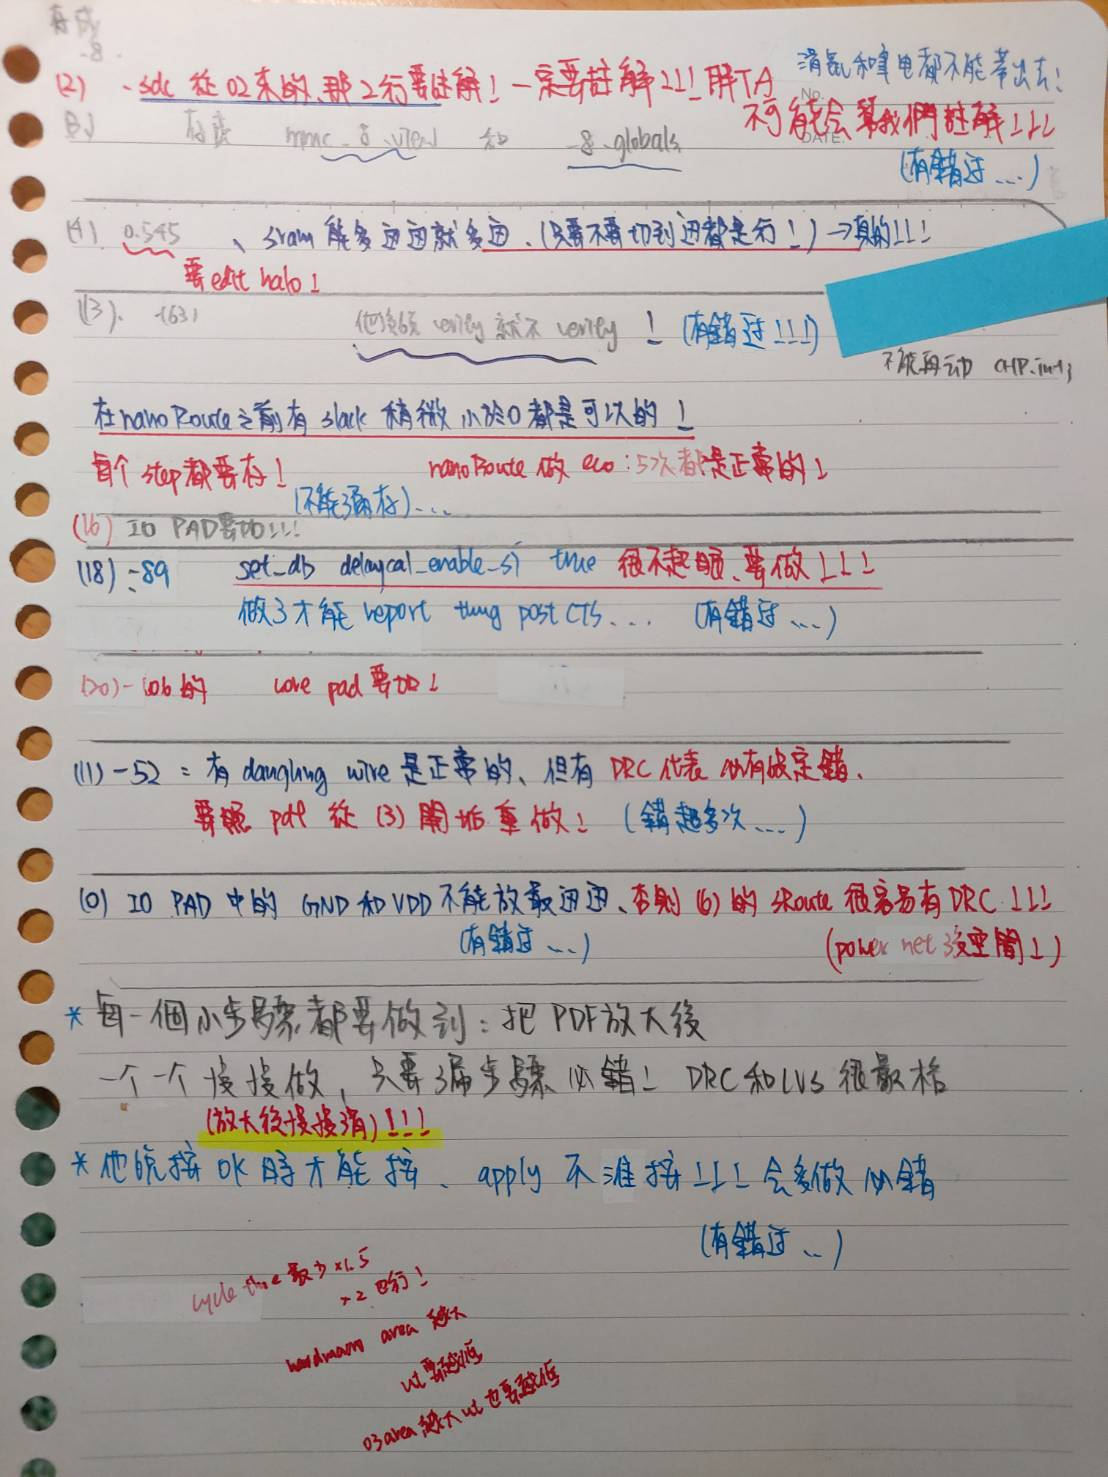 -8.
滑鼠和筆电都不能帶出去!
(2) .sdc 從02来的、那2行要註解! 一定要註解!!! 助TA
不可能会幫我們註解!!!
No.
DATE.
(有錯过...)
mmmc_8.view 和 _8.globals
(4) 0.545、sram 能多边边就多边、(只要不要切到边都是行!)→真的!!!
要edit halo!
(13). -(63) verify 就不 verify ! (有錯过!!!)
不能再动 CHIP.
在nanoRoute之前有 slack 稍微小於0都是可以的!
每个step都要存! nanoRoute 做 eco:5次都是正常的!
(不能漏存)...
(16) IO PAD要加!!!
(18)-89 set_db delaycal_enable_si true 很不起眼、要做!!!
做了才能 report timing post CTS... (有錯过...)
(20)- 的 core pad 要加!
(11)-52 = 有 dangling wire 是正常的、但有 DRC 代表 必有做定錯、
要照 pdf 從 (3) 開始重做! (錯超多次...)
(0) IO PAD 中的 GND 和 VDD 不能放最边边、否則 (6) 的 sRoute 很容易有 DRC !!!
(有錯过...) (power net 沒空間!)
* 每一個小步驟都要做到:把 PDF放大後
一个一个慢慢做,只要漏步驟必錯! DRC和LVS很嚴格
(放大後慢慢消)!!!
* 他說接 OK 時才能接、apply 不准按!!! 会多做必錯
(有錯过..)
cycle time 最少 x1.5
x2 也行!
hardmacro area 越大
ut 要越低
03 area 越大 ut 也要越低